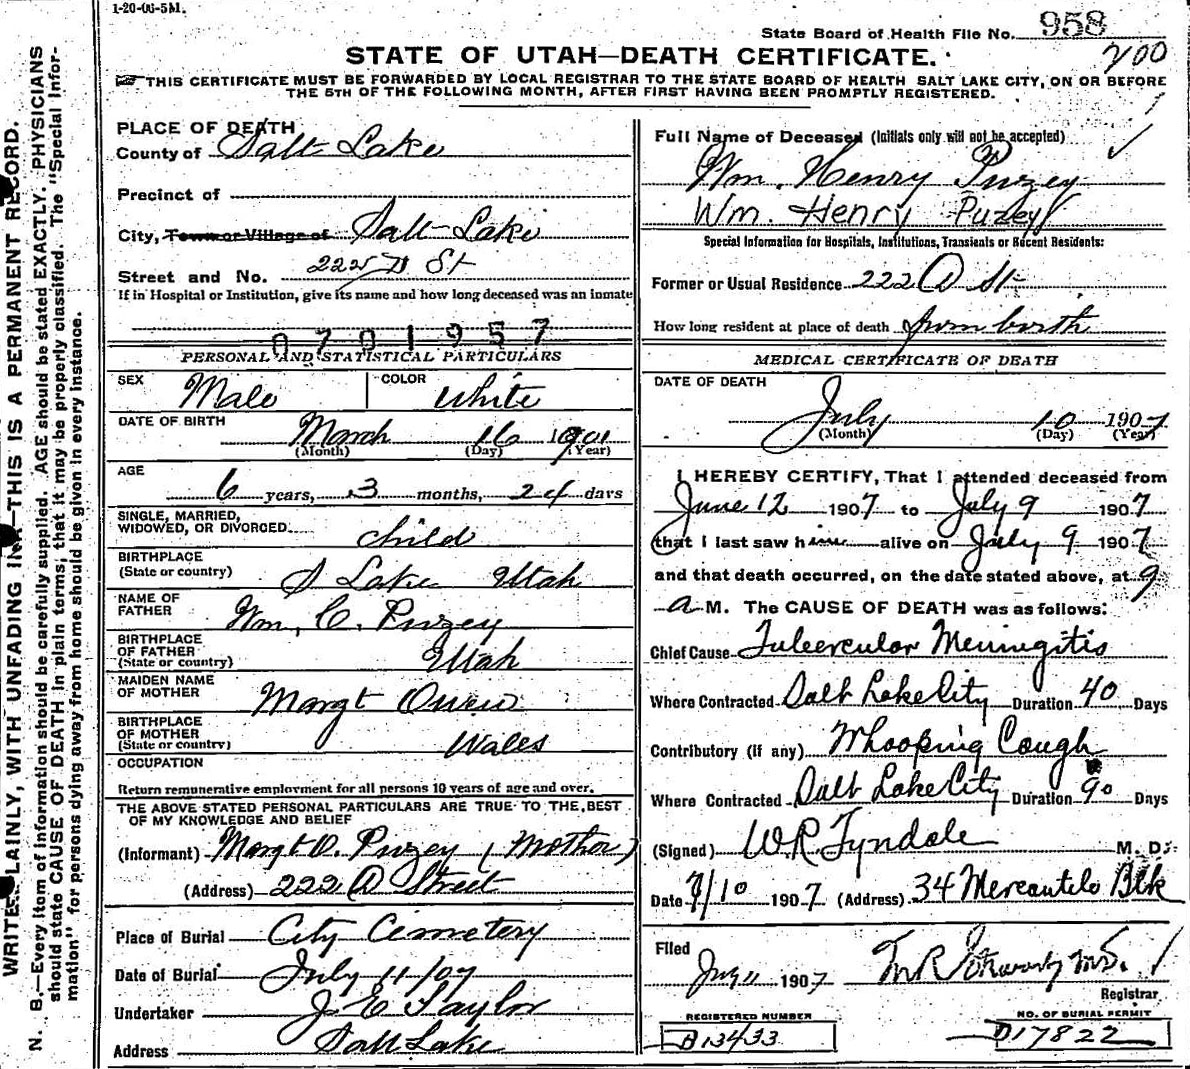 1-20-06-5M.
State Board of Health File No. 958
STATE OF UTAH—DEATH CERTIFICATE.
200
THIS CERTIFICATE MUST BE FORWARDED BY LOCAL REGISTRAR TO THE STATE BOARD OF HEALTH SALT LAKE CITY, ON OR BEFORE
THE 5TH OF THE FOLLOWING MONTH, AFTER FIRST HAVING BEEN PROMPTLY REGISTERED.
PLACE OF DEATH
County of Salt Lake
Precinct of
City, Town or Village of Salt Lake
Street and No. 222 D St
If in Hospital or Institution, give its name and how long deceased was an inmate
0701957
PERSONAL AND STATISTICAL PARTICULARS
SEX Male COLOR White
DATE OF BIRTH
March 16 1901
(Month) (Day) (Year)
AGE
6 years, 3 months, 24 days
SINGLE, MARRIED,
WIDOWED, OR DIVORCED. child
BIRTHPLACE
(State or country) S Lake Utah
NAME OF
FATHER Wm. C. Puzey
BIRTHPLACE
OF FATHER
(State or country) Utah
MAIDEN NAME
OF MOTHER Margt Owen
BIRTHPLACE
OF MOTHER
(State or country) Wales
OCCUPATION
Return remunerative employment for all persons 10 years of age and over.
THE ABOVE STATED PERSONAL PARTICULARS ARE TRUE TO THE BEST
OF MY KNOWLEDGE AND BELIEF
(Informant) Margt O. Puzey (Mother)
(Address) 222 D Street
Place of Burial City Cemetery
Date of Burial July 11/07
Undertaker J E Taylor
Address Salt Lake
Full Name of Deceased (Initials only will not be accepted)
Wm. Henry Puzey
Wm. Henry Puzey
Special Information for Hospitals, Institutions, Transients or Recent Residents:
Former or Usual Residence 222 D St
How long resident at place of death from birth
MEDICAL CERTIFICATE OF DEATH
DATE OF DEATH
July 10 1907
(Month) (Day) (Year)
I HEREBY CERTIFY, That I attended deceased from
June 12 1907 to July 9 1907
that I last saw him alive on July 9 1907
and that death occurred, on the date stated above, at 9
a M. The CAUSE OF DEATH was as follows:
Chief Cause Tubercular Meningitis
Where Contracted Salt Lake City Duration 40 Days
Contributory (if any) Whooping Cough
Where Contracted Salt Lake City Duration 90 Days
(Signed) W.R. Tyndale M. D.
Date 7/10 1907 (Address) 34 Mercantile Blk
Filed
July 11 1907
Registrar
REGISTERED NUMBER
D13433
NO. OF BURIAL PERMIT
D17822
WRITE PLAINLY, WITH UNFADING INK—THIS IS A PERMANENT RECORD.
N. B.—Every item of information should be carefully supplied. AGE should be stated EXACTLY. PHYSICIANS
should state CAUSE OF DEATH in plain terms, that it may be properly classified. The "Special Infor-
mation" for persons dying away from home should be given in every instance.